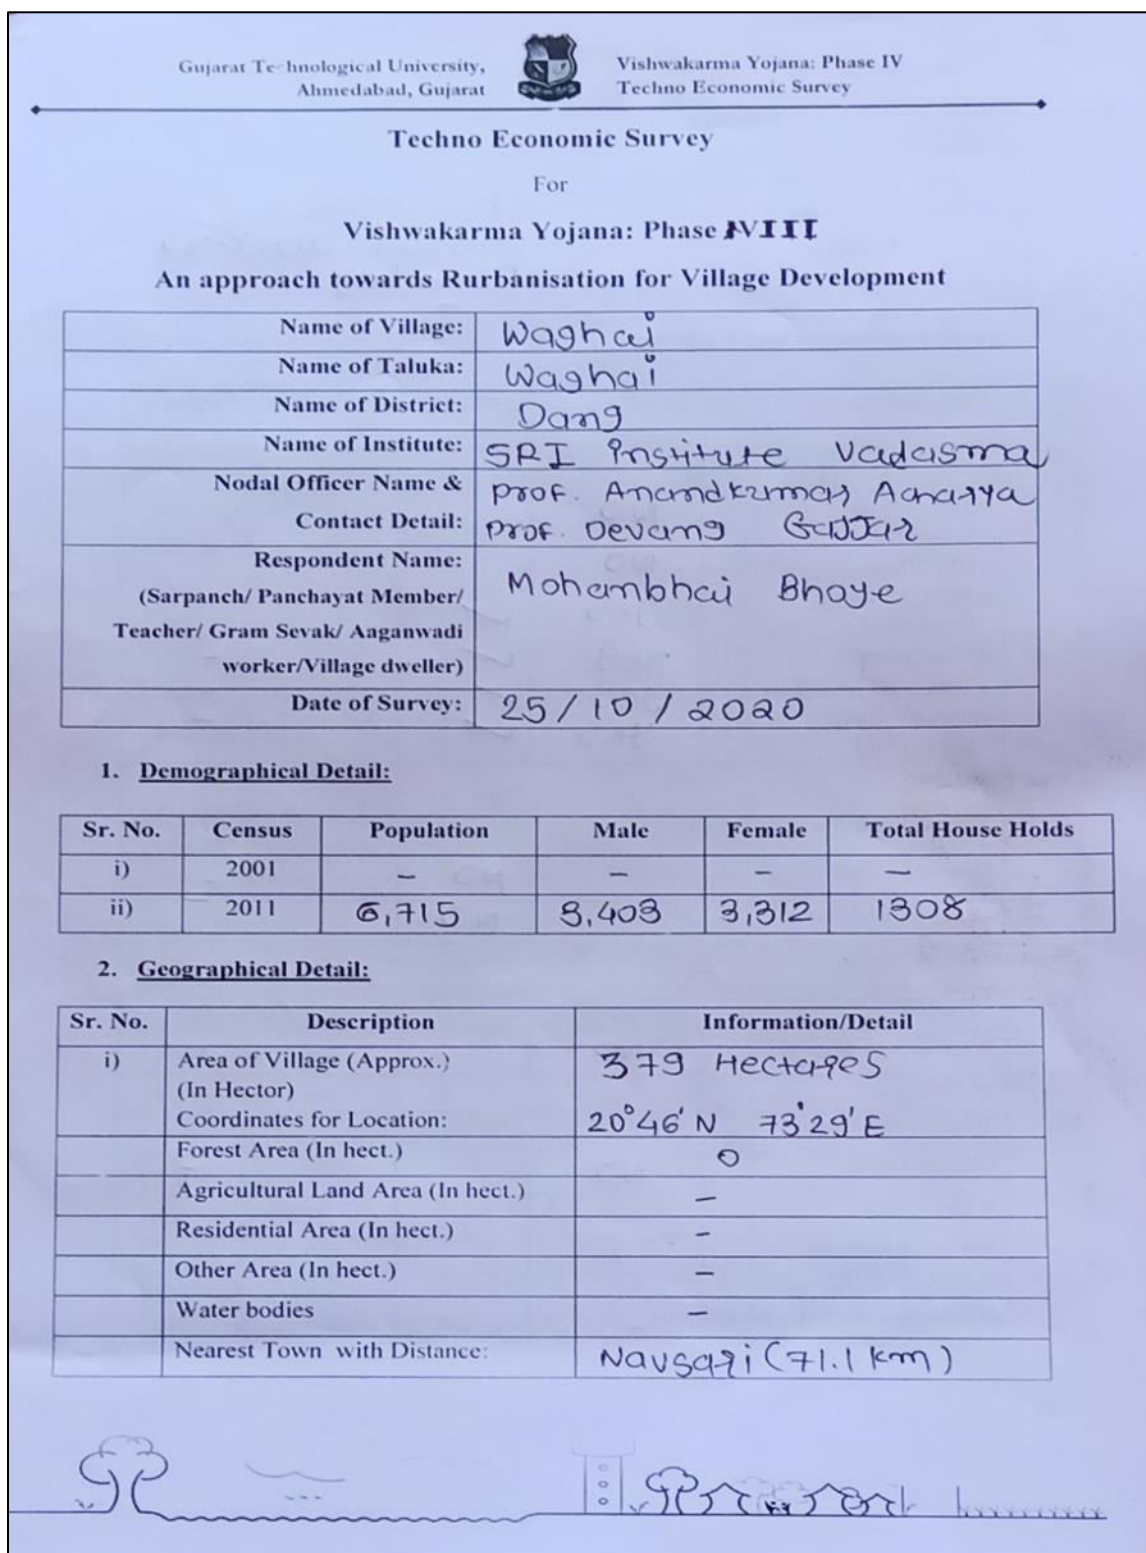 Gujarat Technological University,
Ahmedabad, Gujarat
Vishwakarma Yojana: Phase IV
Techno Economic Survey
Techno Economic Survey
For
Vishwakarma Yojana: Phase VIII
An approach towards Rurbanisation for Village Development
Name of Village: Waghai
Name of Taluka: Waghai
Name of District: Dang
Name of Institute: SRI Institute Vadasma
Nodal Officer Name & Prof. Anandkumar Acharya
Contact Detail: Prof. Devang Gajjar
Respondent Name: Mohanbhai Bhoye
(Sarpanch/ Panchayat Member/
Teacher/ Gram Sevak/ Aaganwadi
worker/Village dweller)
Date of Survey: 25/10/2020
1. Demographical Detail:
Sr. No. Census Population Male Female Total House Holds
i) 2001 – – – –
ii) 2011 6,715 3,403 3,312 1308
2. Geographical Detail:
Sr. No. Description Information/Detail
i) Area of Village (Approx.) 379 Hectares
(In Hector)
Coordinates for Location: 20°46' N 73°29' E
Forest Area (In hect.) 0
Agricultural Land Area (In hect.) –
Residential Area (In hect.) –
Other Area (In hect.) –
Water bodies –
Nearest Town with Distance: Navsari (71.1 km)